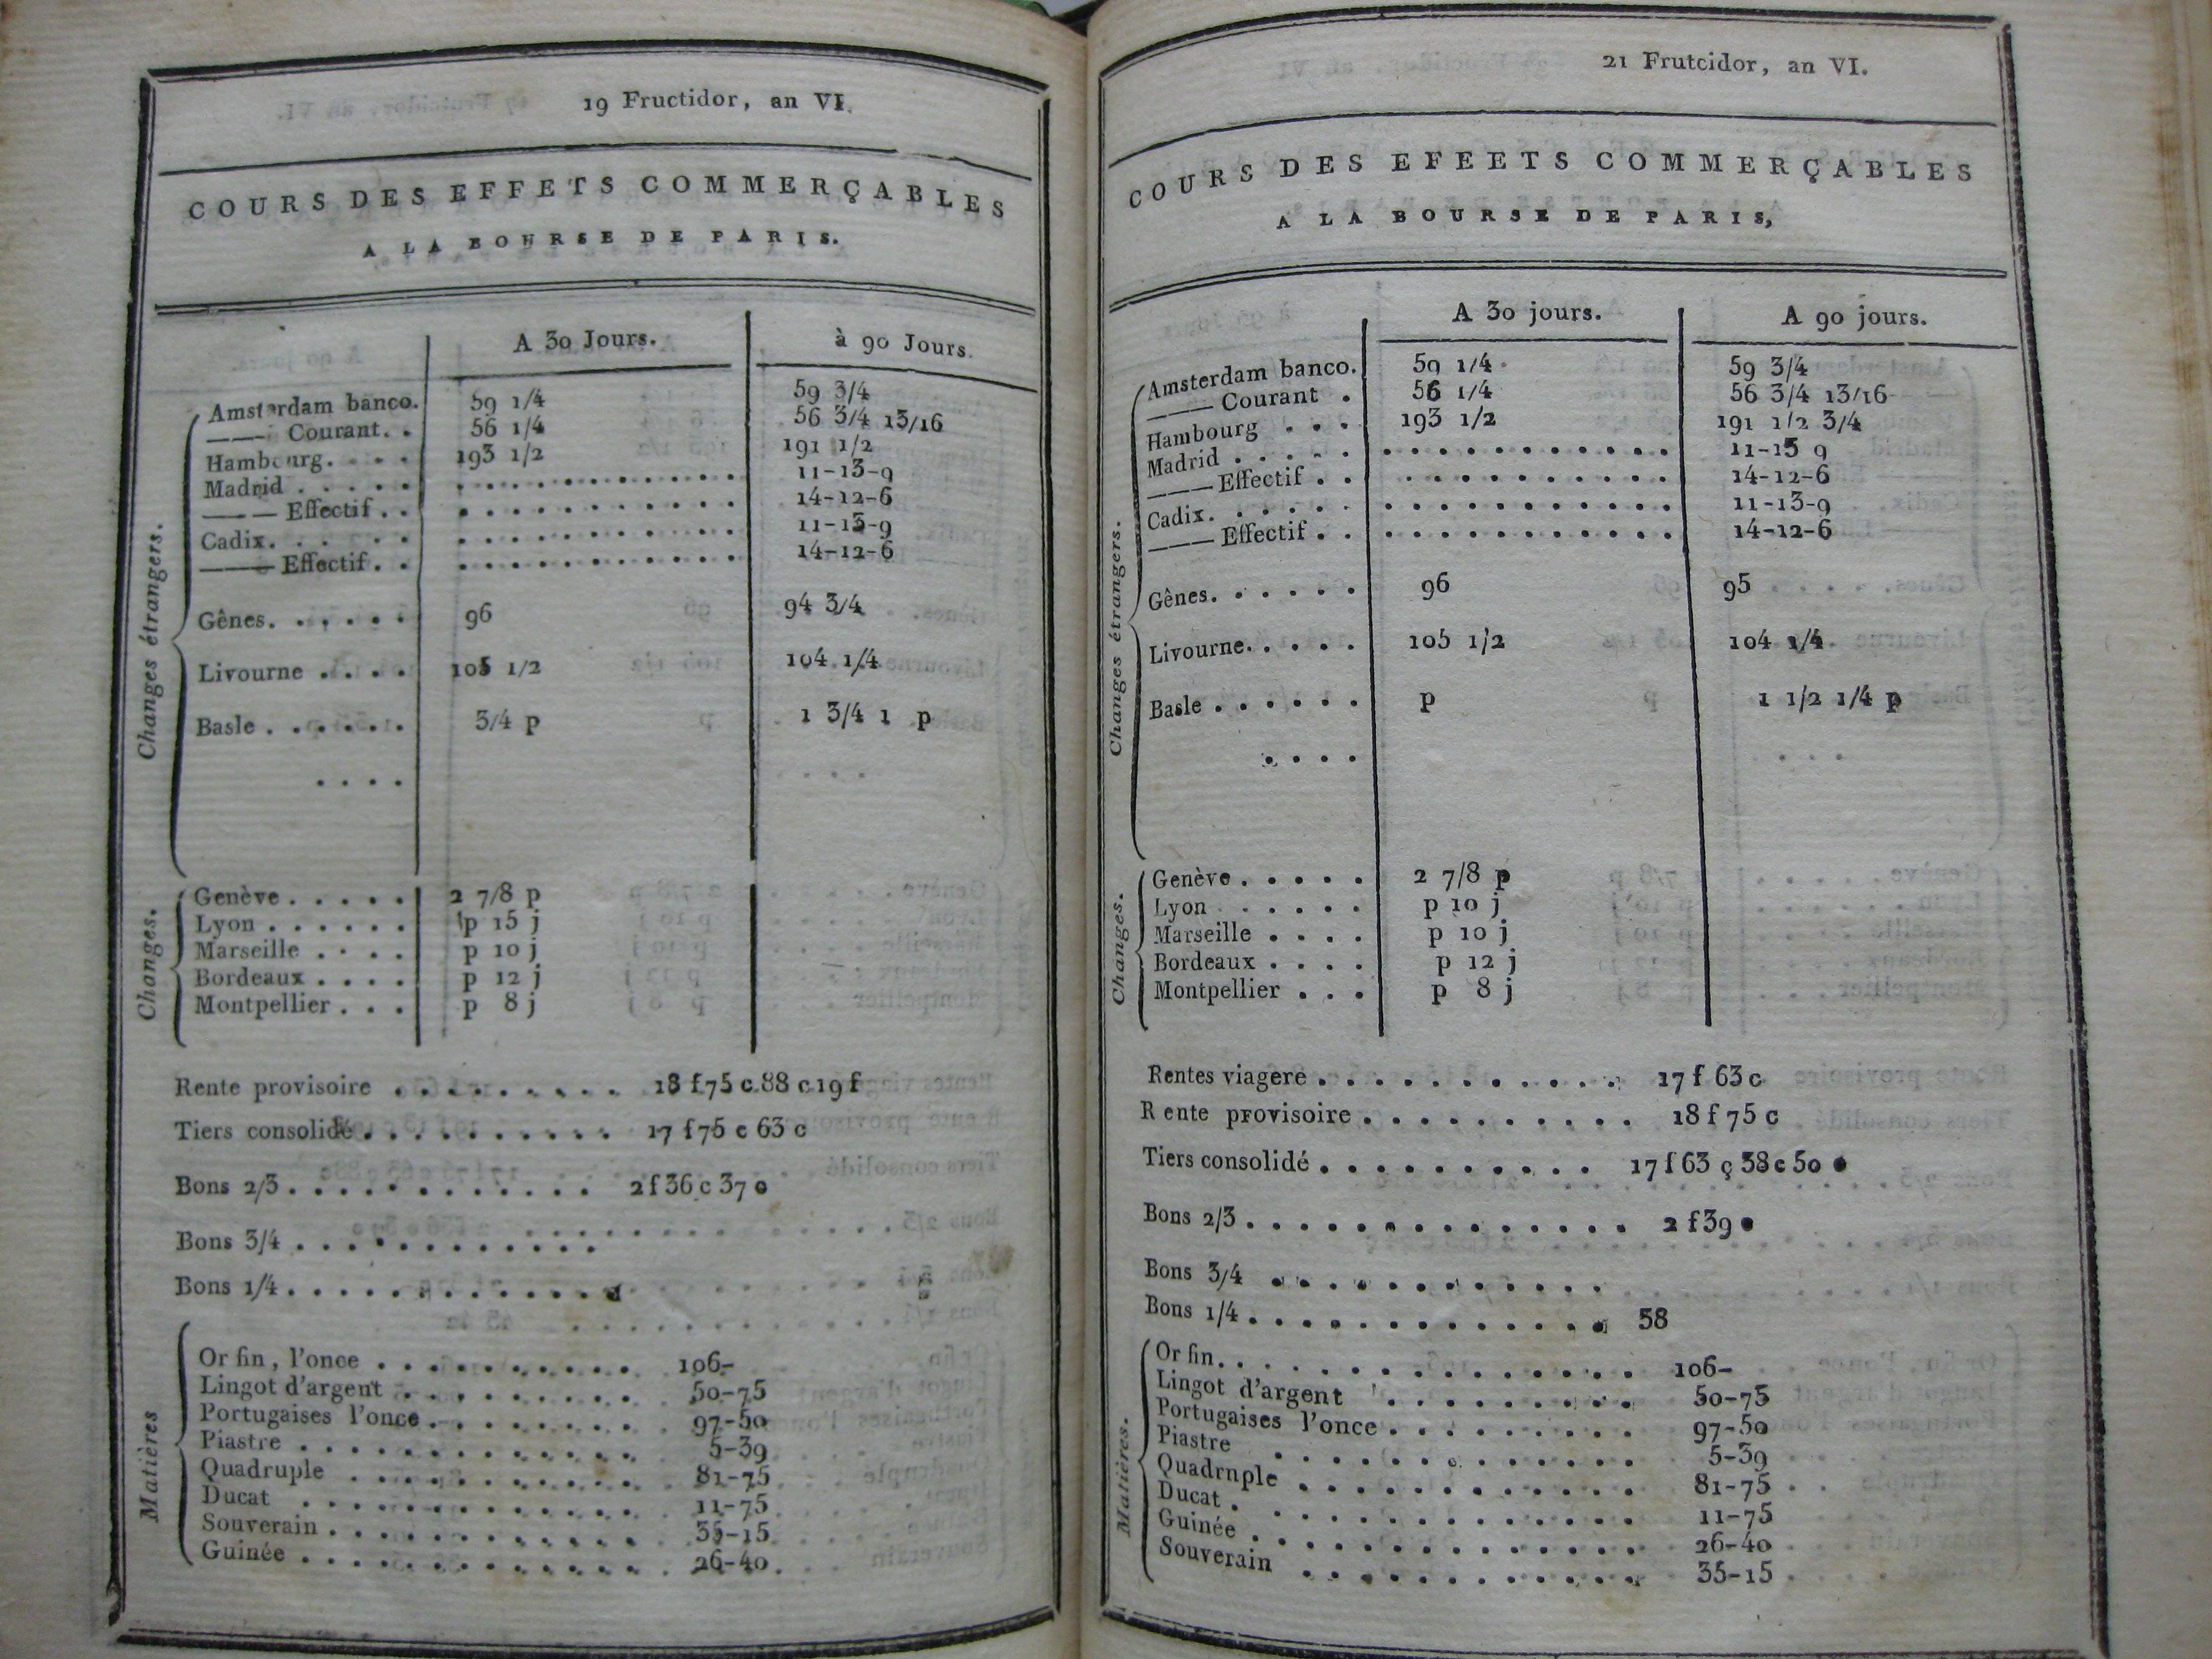 19 Fructidor, an VI.
COURS DES EFFETS COMMERÇABLES
A LA BOURSE DE PARIS.
A 30 Jours. à 90 Jours.
Changes étrangers.
Amsterdam banco. 59 1/4 59 3/4
——— Courant. . 56 1/4 56 3/4 13/16
Hambourg. . . . 193 1/2 191 1/2
Madrid . . . . . . . . . . . . . . . 11-13-9
——— Effectif . . . . . . . . . . . . 14-12-6
Cadix. . . . . . . . . . . . . . . . 11-13-9
——— Effectif . . . . . . . . . . . . 14-12-6
Gênes. . . . . . 96 94 3/4
Livourne . . . . 105 1/2 104 1/4
Basle . . . . . . 3/4 p 1 3/4 1 p
. . . .
Changes.
Genève . . . . . 2 7/8 p
Lyon . . . . . . p 15 j
Marseille . . . . p 10 j
Bordeaux . . . . p 12 j
Montpellier . . . p 8 j
Rente provisoire . . . . . . . . . 18 f 75 c 88 c 19 f
Tiers consolidé . . . . . . . . . . 17 f 75 c 63 c
Bons 2/3 . . . . . . . . . . . . 2 f 36 c 37 c
Bons 3/4 . . . . . . . . . . . .
Bons 1/4 . . . . . . . . . . . .
Matières
Or fin, l'once . . . . . . . . . . 106-
Lingot d'argent . . . . . . . . . 50-75
Portugaises l'once . . . . . . . . 97-50
Piastre . . . . . . . . . . . . . 5-39
Quadruple . . . . . . . . . . . . 81-75
Ducat . . . . . . . . . . . . . 11-75
Souverain . . . . . . . . . . . . 35-15
Guinée . . . . . . . . . . . . . 26-40
21 Frutcidor, an VI.
COURS DES EFEETS COMMERÇABLES
A LA BOURSE DE PARIS,
A 30 jours. A 90 jours.
Changes étrangers.
Amsterdam banco. 59 1/4 59 3/4
——— Courant . 56 1/4 56 3/4 13/16
Hambourg . . . 193 1/2 191 1/2 3/4
Madrid . . . . . . . . . . . . . . . 11-13 9
——— Effectif . . . . . . . . . . . . 14-12-6
Cadix. . . . . . . . . . . . . . . . 11-13-9
——— Effectif . . . . . . . . . . . . 14-12-6
Gênes. . . . . . 96 95
Livourne. . . . . 105 1/2 104 1/4
Basle . . . . . . p 1 1/2 1/4 p
. . . .
Changes.
Genève . . . . . 2 7/8 p
Lyon . . . . . . p 10 j
Marseille . . . . p 10 j
Bordeaux . . . . p 12 j
Montpellier . . . p 8 j
Rentes viagere . . . . . . . . . . . 17 f 63 c
Rente provisoire . . . . . . . . . . 18 f 75 c
Tiers consolidé . . . . . . . . . . 17 f 63 ç 38 c 50 c
Bons 2/3 . . . . . . . . . . . . . . 2 f 39 c
Bons 3/4 . . . . . . . . . . . . .
Bons 1/4 . . . . . . . . . . . . . . 58
Matières.
Or fin. . . . . . . . . . . . . . . 106-
Lingot d'argent . . . . . . . . . . 50-75
Portugaises l'once . . . . . . . . . 97-50
Piastre . . . . . . . . . . . . . . 5-39
Quadrnple . . . . . . . . . . . . . 81-75
Ducat . . . . . . . . . . . . . . . 11-75
Guinée . . . . . . . . . . . . . . . 26-40
Souverain . . . . . . . . . . . . . 35-15